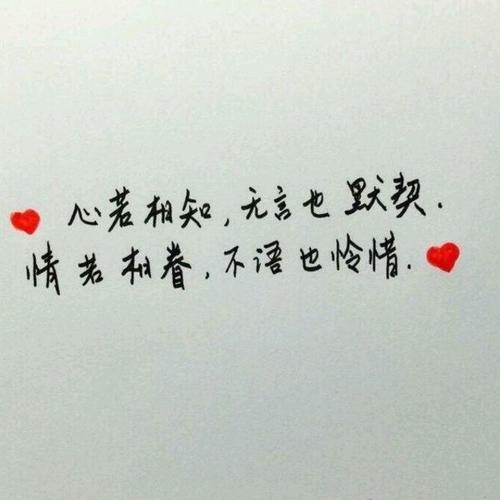 心若相知，无言也默契.
情若相眷，不语也怜惜.